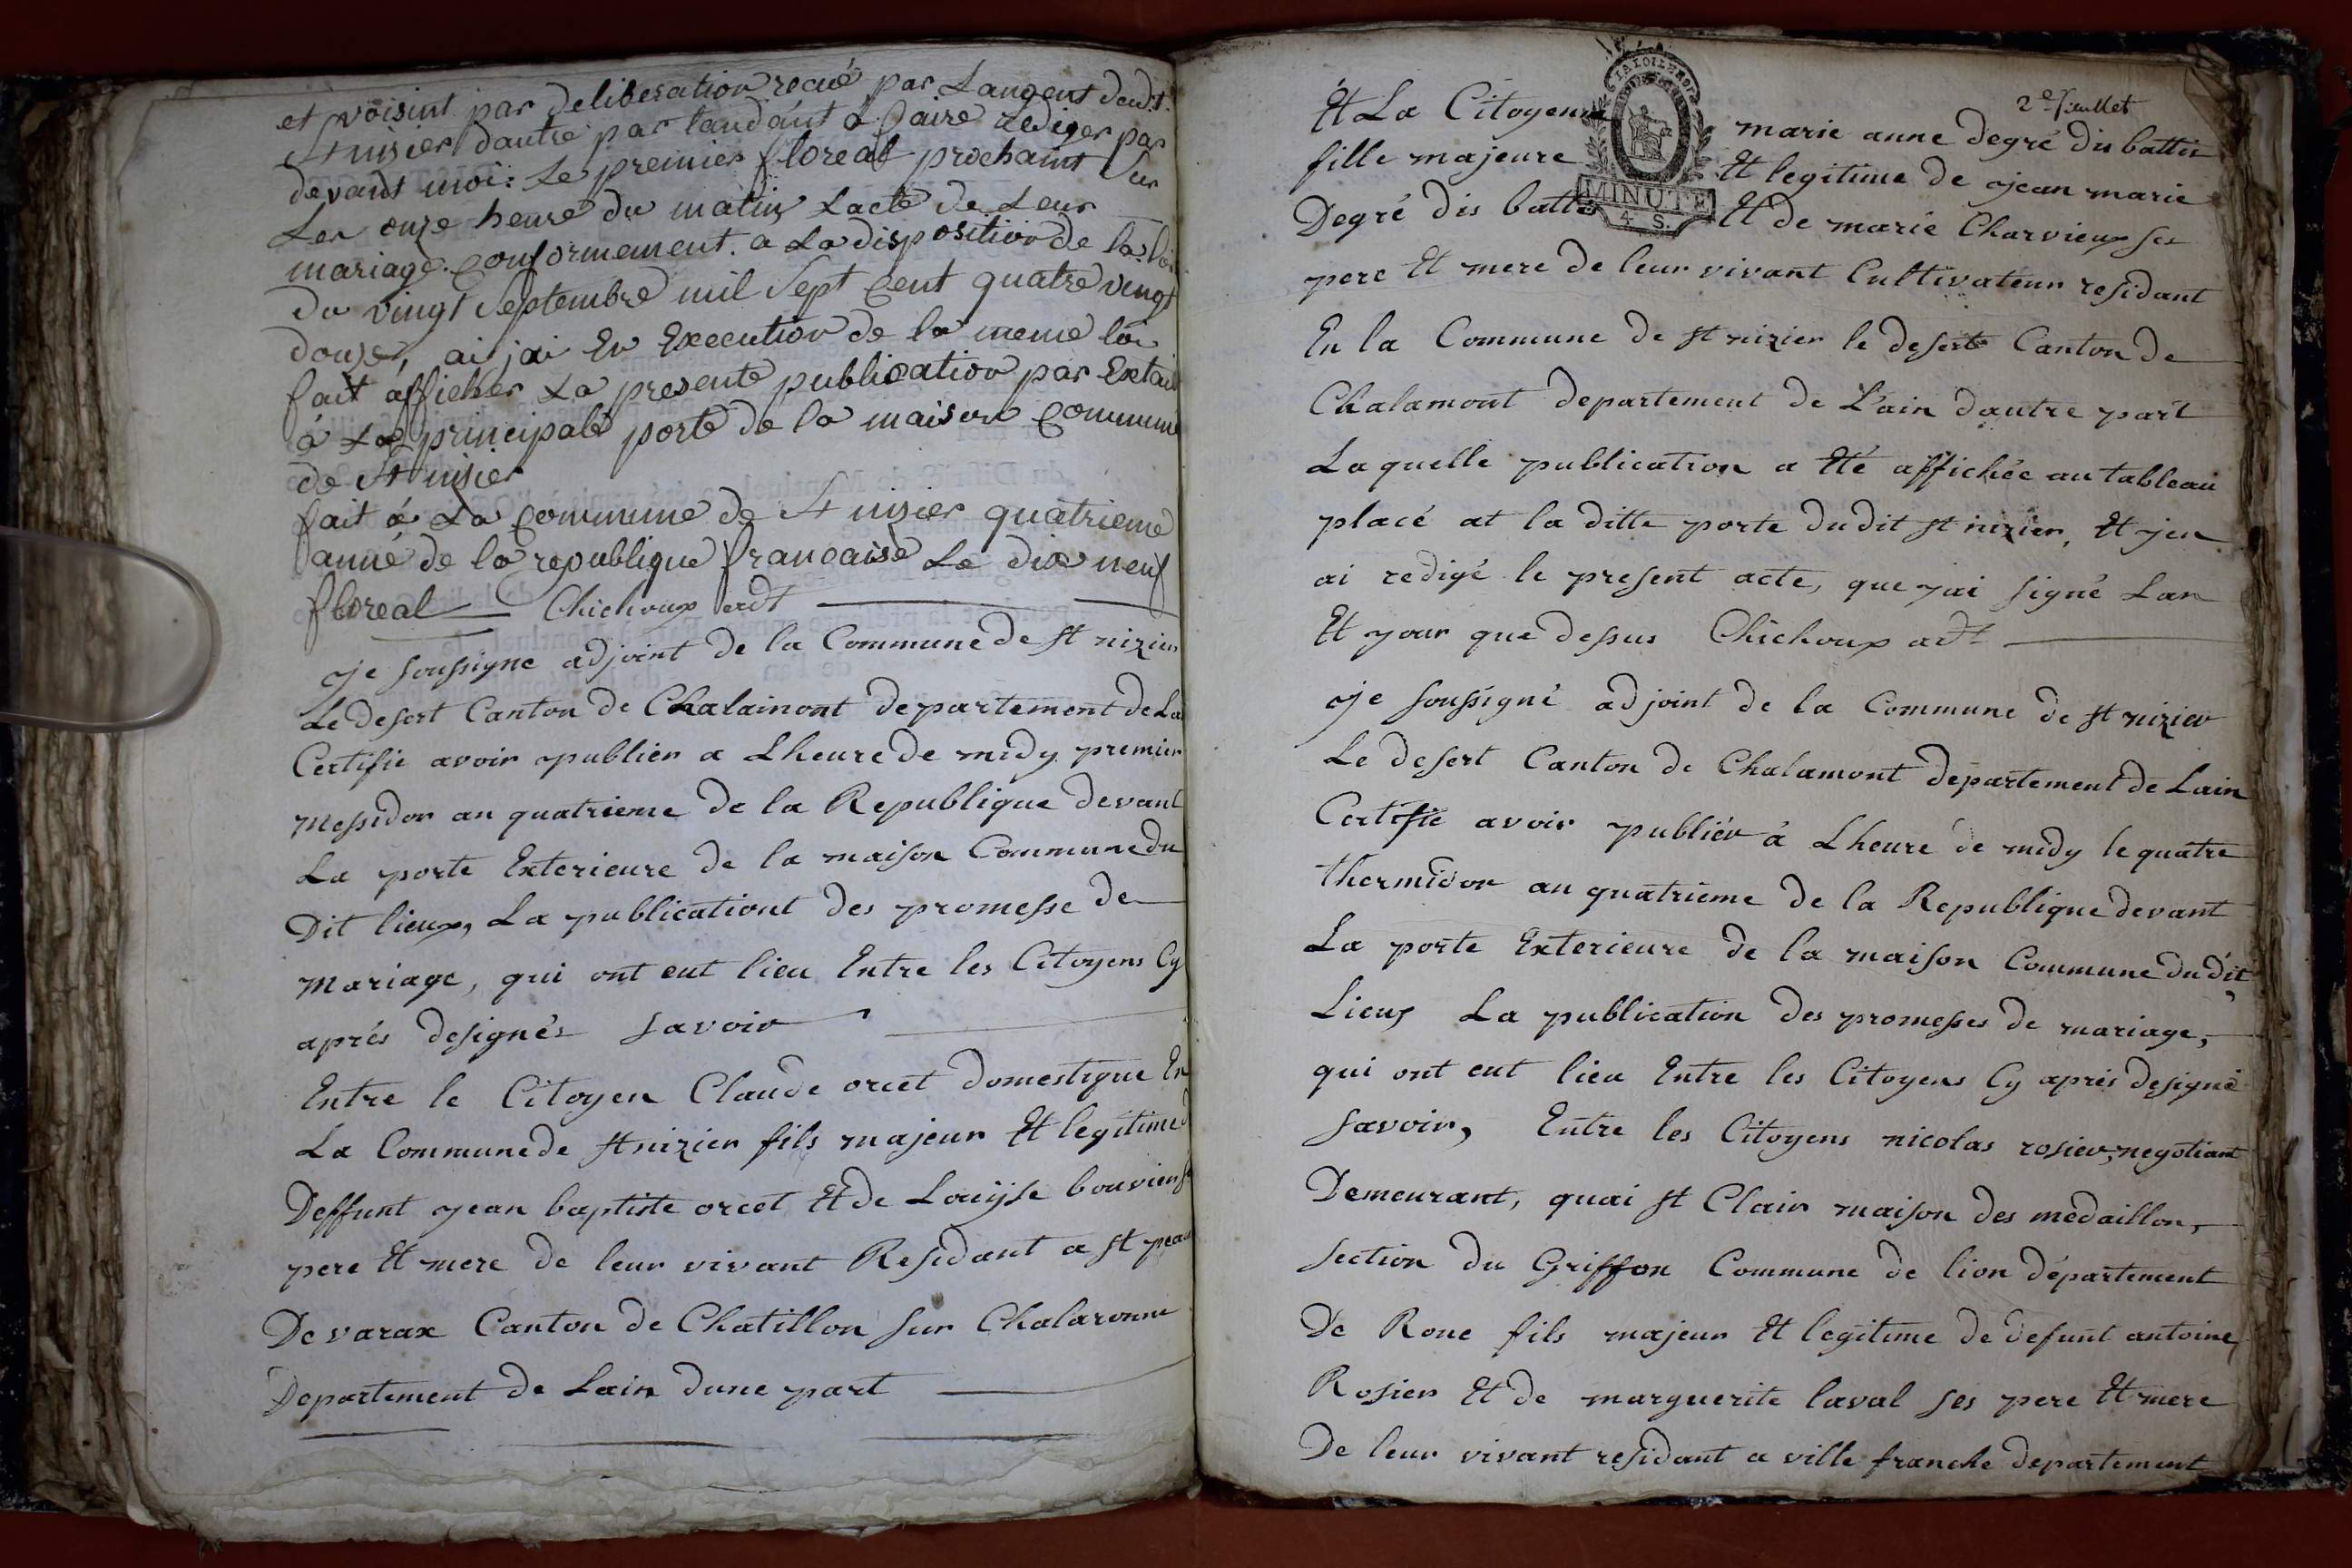 et voisint par deliberation recue par Langent dudt.
St nisier dautre par tandant á faire rediger par
devant moi: Le premier floreal prochaint sur
Les onze heure du matin Lacte de Leur
mariage. conformement. a La disposition de la loi
du vingt septembre mil sept cent quatre vingt
douze, ai jai En Execution de la meme loi
fait afficher La presente publication par Extait
á La principale porte de la maison commune
de St nisier
fait á La commune de St nisier quatrieme
année de la republique francaise Le dix neuf
floreal Chichoux adt
je soussigne adjoint de la Commune de st nizier
Le desert Canton de Chalamont departement de La
Certifie avoir publier a Lheure de midy premier
messidor an quatrieme de la Republique devant
La porte Exterieure de la maison Commune du
Dit lieux, La publicationt des promesse de
mariage, qui ont eut lieu Entre les Citoyens Cy
aprés designés savoir
Entre le Citoyen Claude orcet domestique En
La Commune de st nizier fils majeur Et legitime d
Deffunt jean baptiste orcet Et de Louise bouvier
pere Et mere de leur vivant Residant a st
De varax Canton de Chatillon sur Chalaronne
Departement de Lain dune part
2e feuillet
LA LOI LE ROI
MINUTE
4. S.
Et La Citoyenne marie anne degré dis battis
fille majeure Et legitime de jean marie
Degré dis battis Et de marie Charvieux ses
pere Et mere de leur vivant Cultivateur residant
En la Commune de st nizier le desert Canton de
Chalamont departement de L'ain dautre part
Laquelle publication a Eté affichée au tableau
placé at la ditte porte dudit st nizier, Et jen
ai redigé le present acte, que jai signé Lan
Et jour que dessus Chichoux adt
je soussigné adjoint de la Commune de st nizier
Le desert Canton de Chalamont departement de Lain
Certifie avoir publiér á Lheure de midy le quatre
thermidor an quatrieme de la Republique devant
La porte Exterieure de la maison Commune dudit
Lieux La publication des promesses de mariage,
qui ont eut lieu Entre les Citoyens Cy aprés designé
savoir, Entre les Citoyens nicolas rosier, negotiant
Demeurant, quai st Clair maison des medaillon,
section du Griffon Commune de lion département
De Rone fils majeur Et legitime de defunt antoine
Rosier Et de marguerite laval ses pere Et mere
De leur vivant residant a ville franche departement